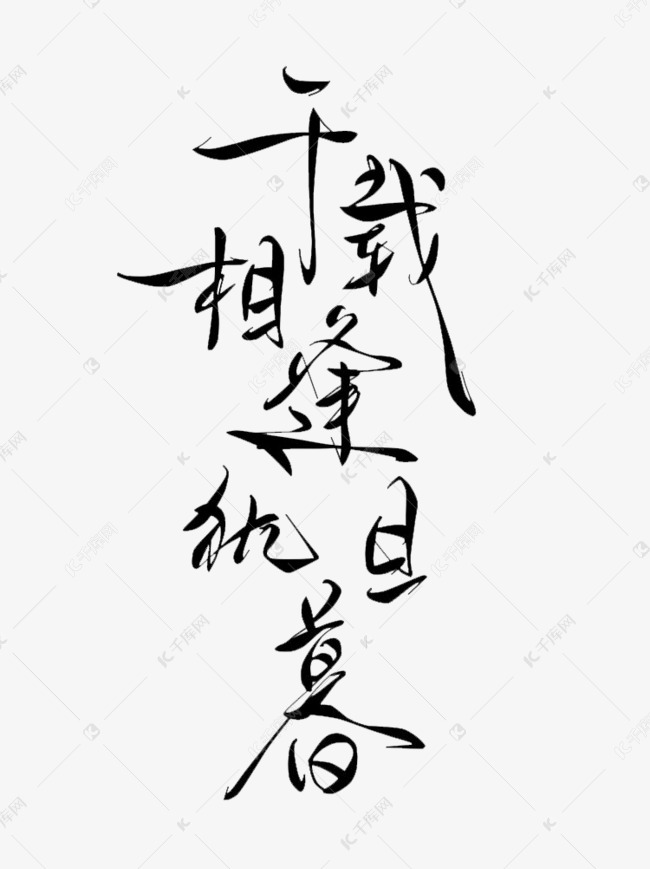 千载
相逢
犹旦
暮
千库网